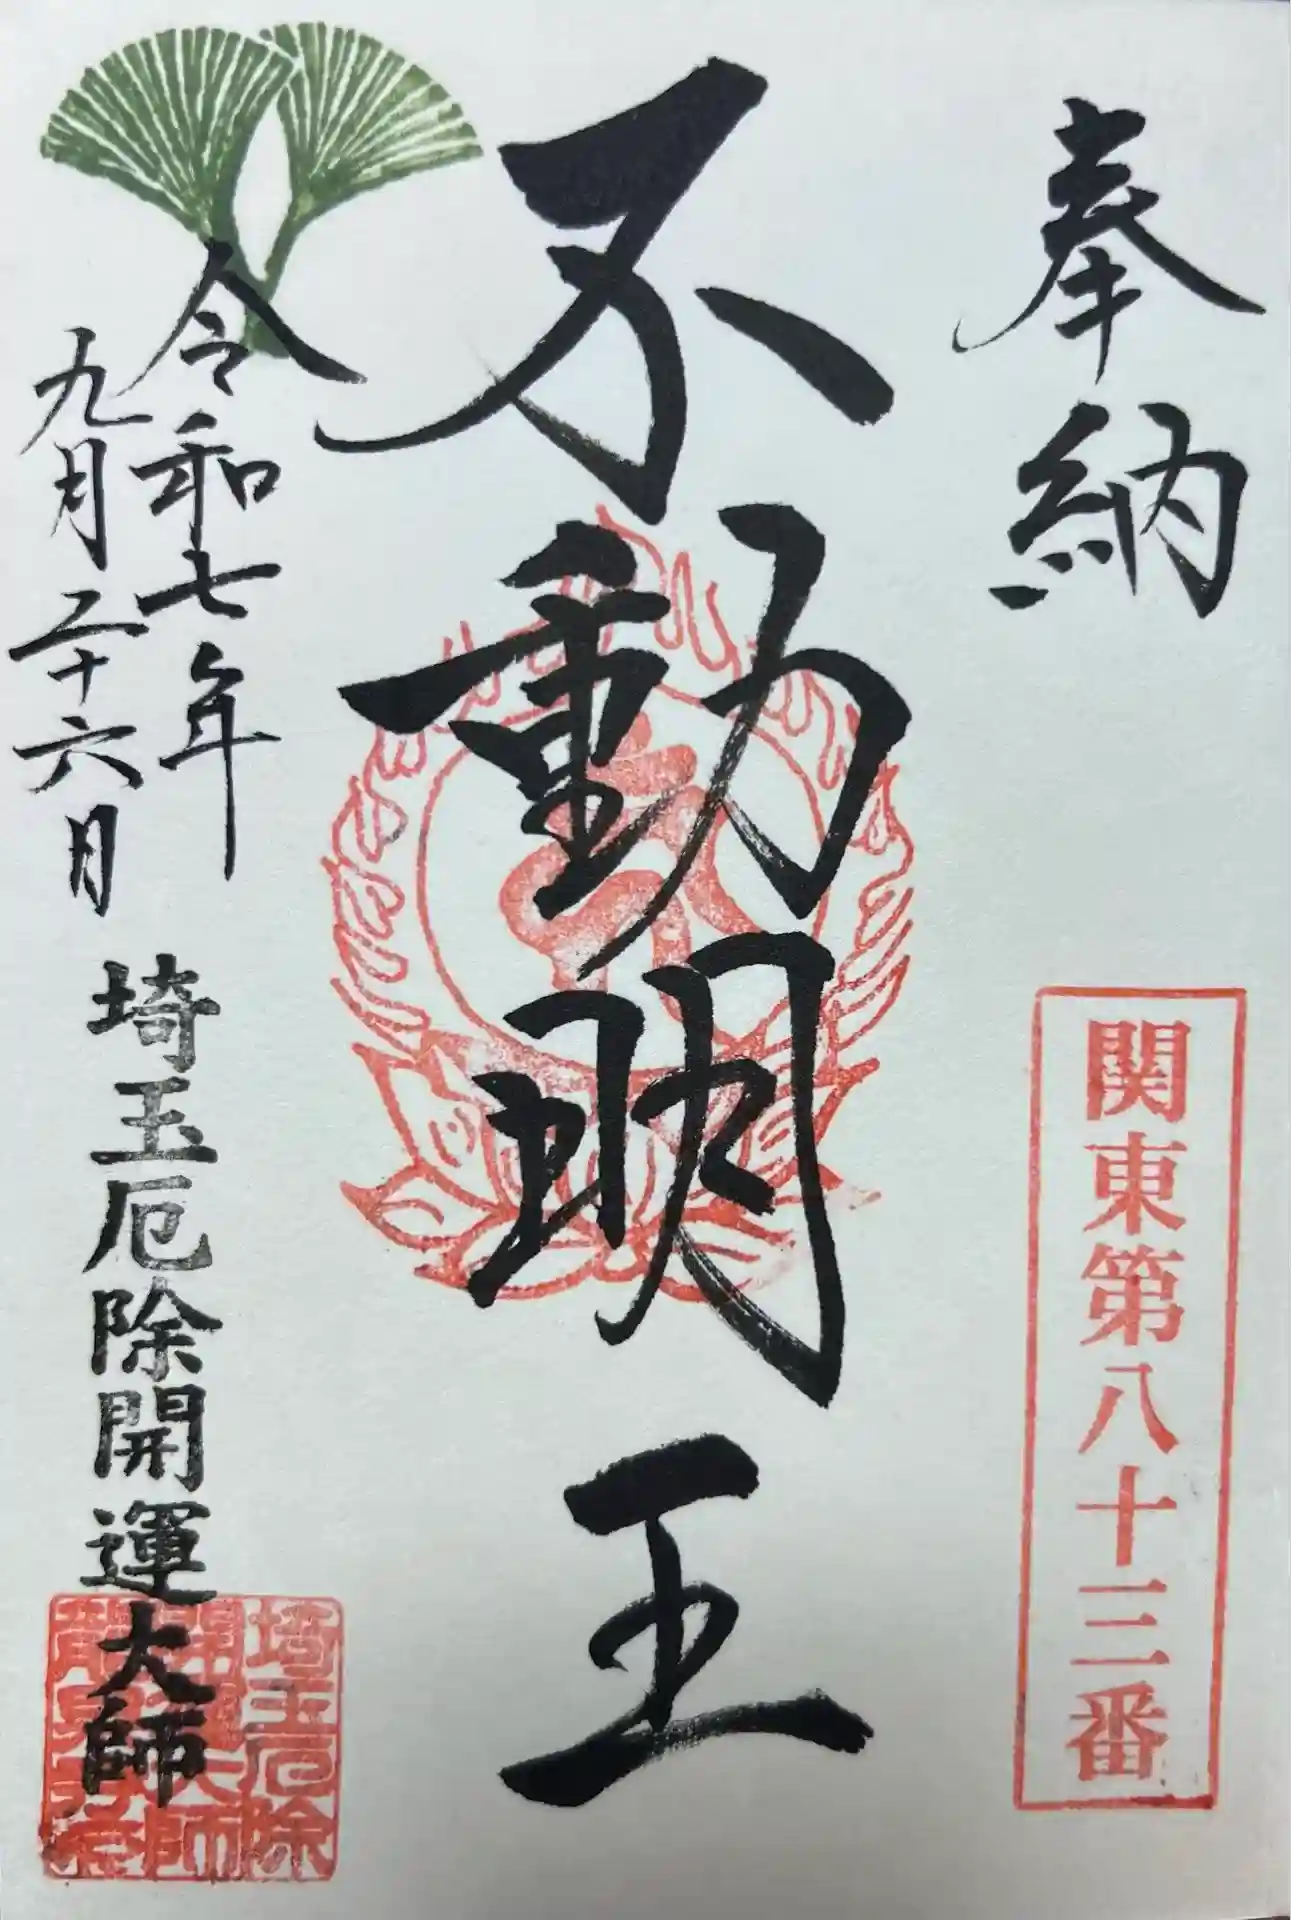 奉納
関東第八十三番
不動明王
令和七年
九月二十六日
埼玉厄除開運大師
埼玉厄除
開運大師
龍泉寺